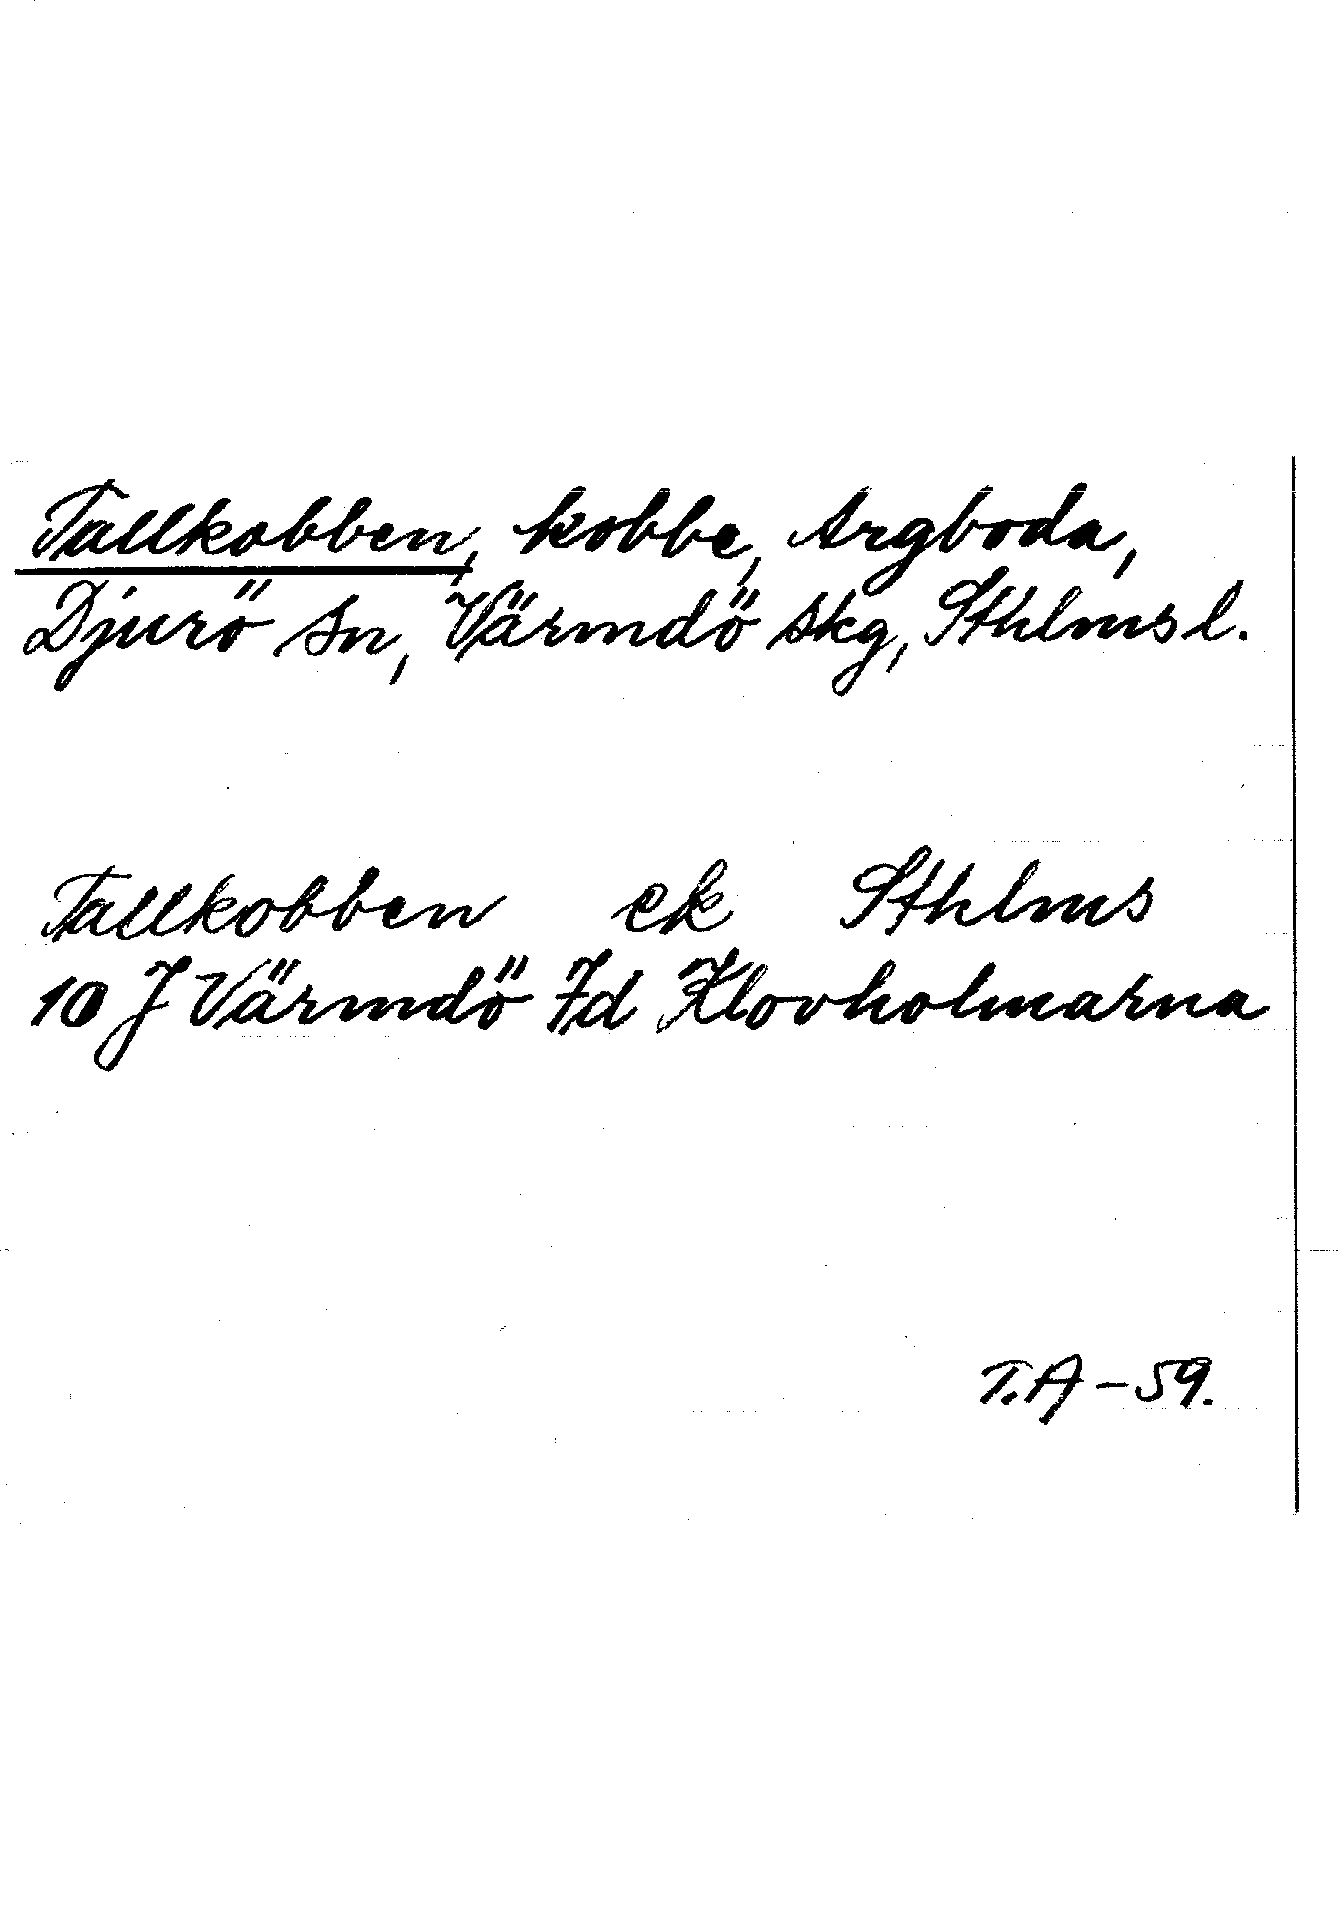 Tallkobben, kobbe, Argboda,
Djurö sn, Värmdö skg, Sthlms l.
Tallkobben ek Sthlms
10 J Värmdö 7d Klovholmarna
T.A - 59.